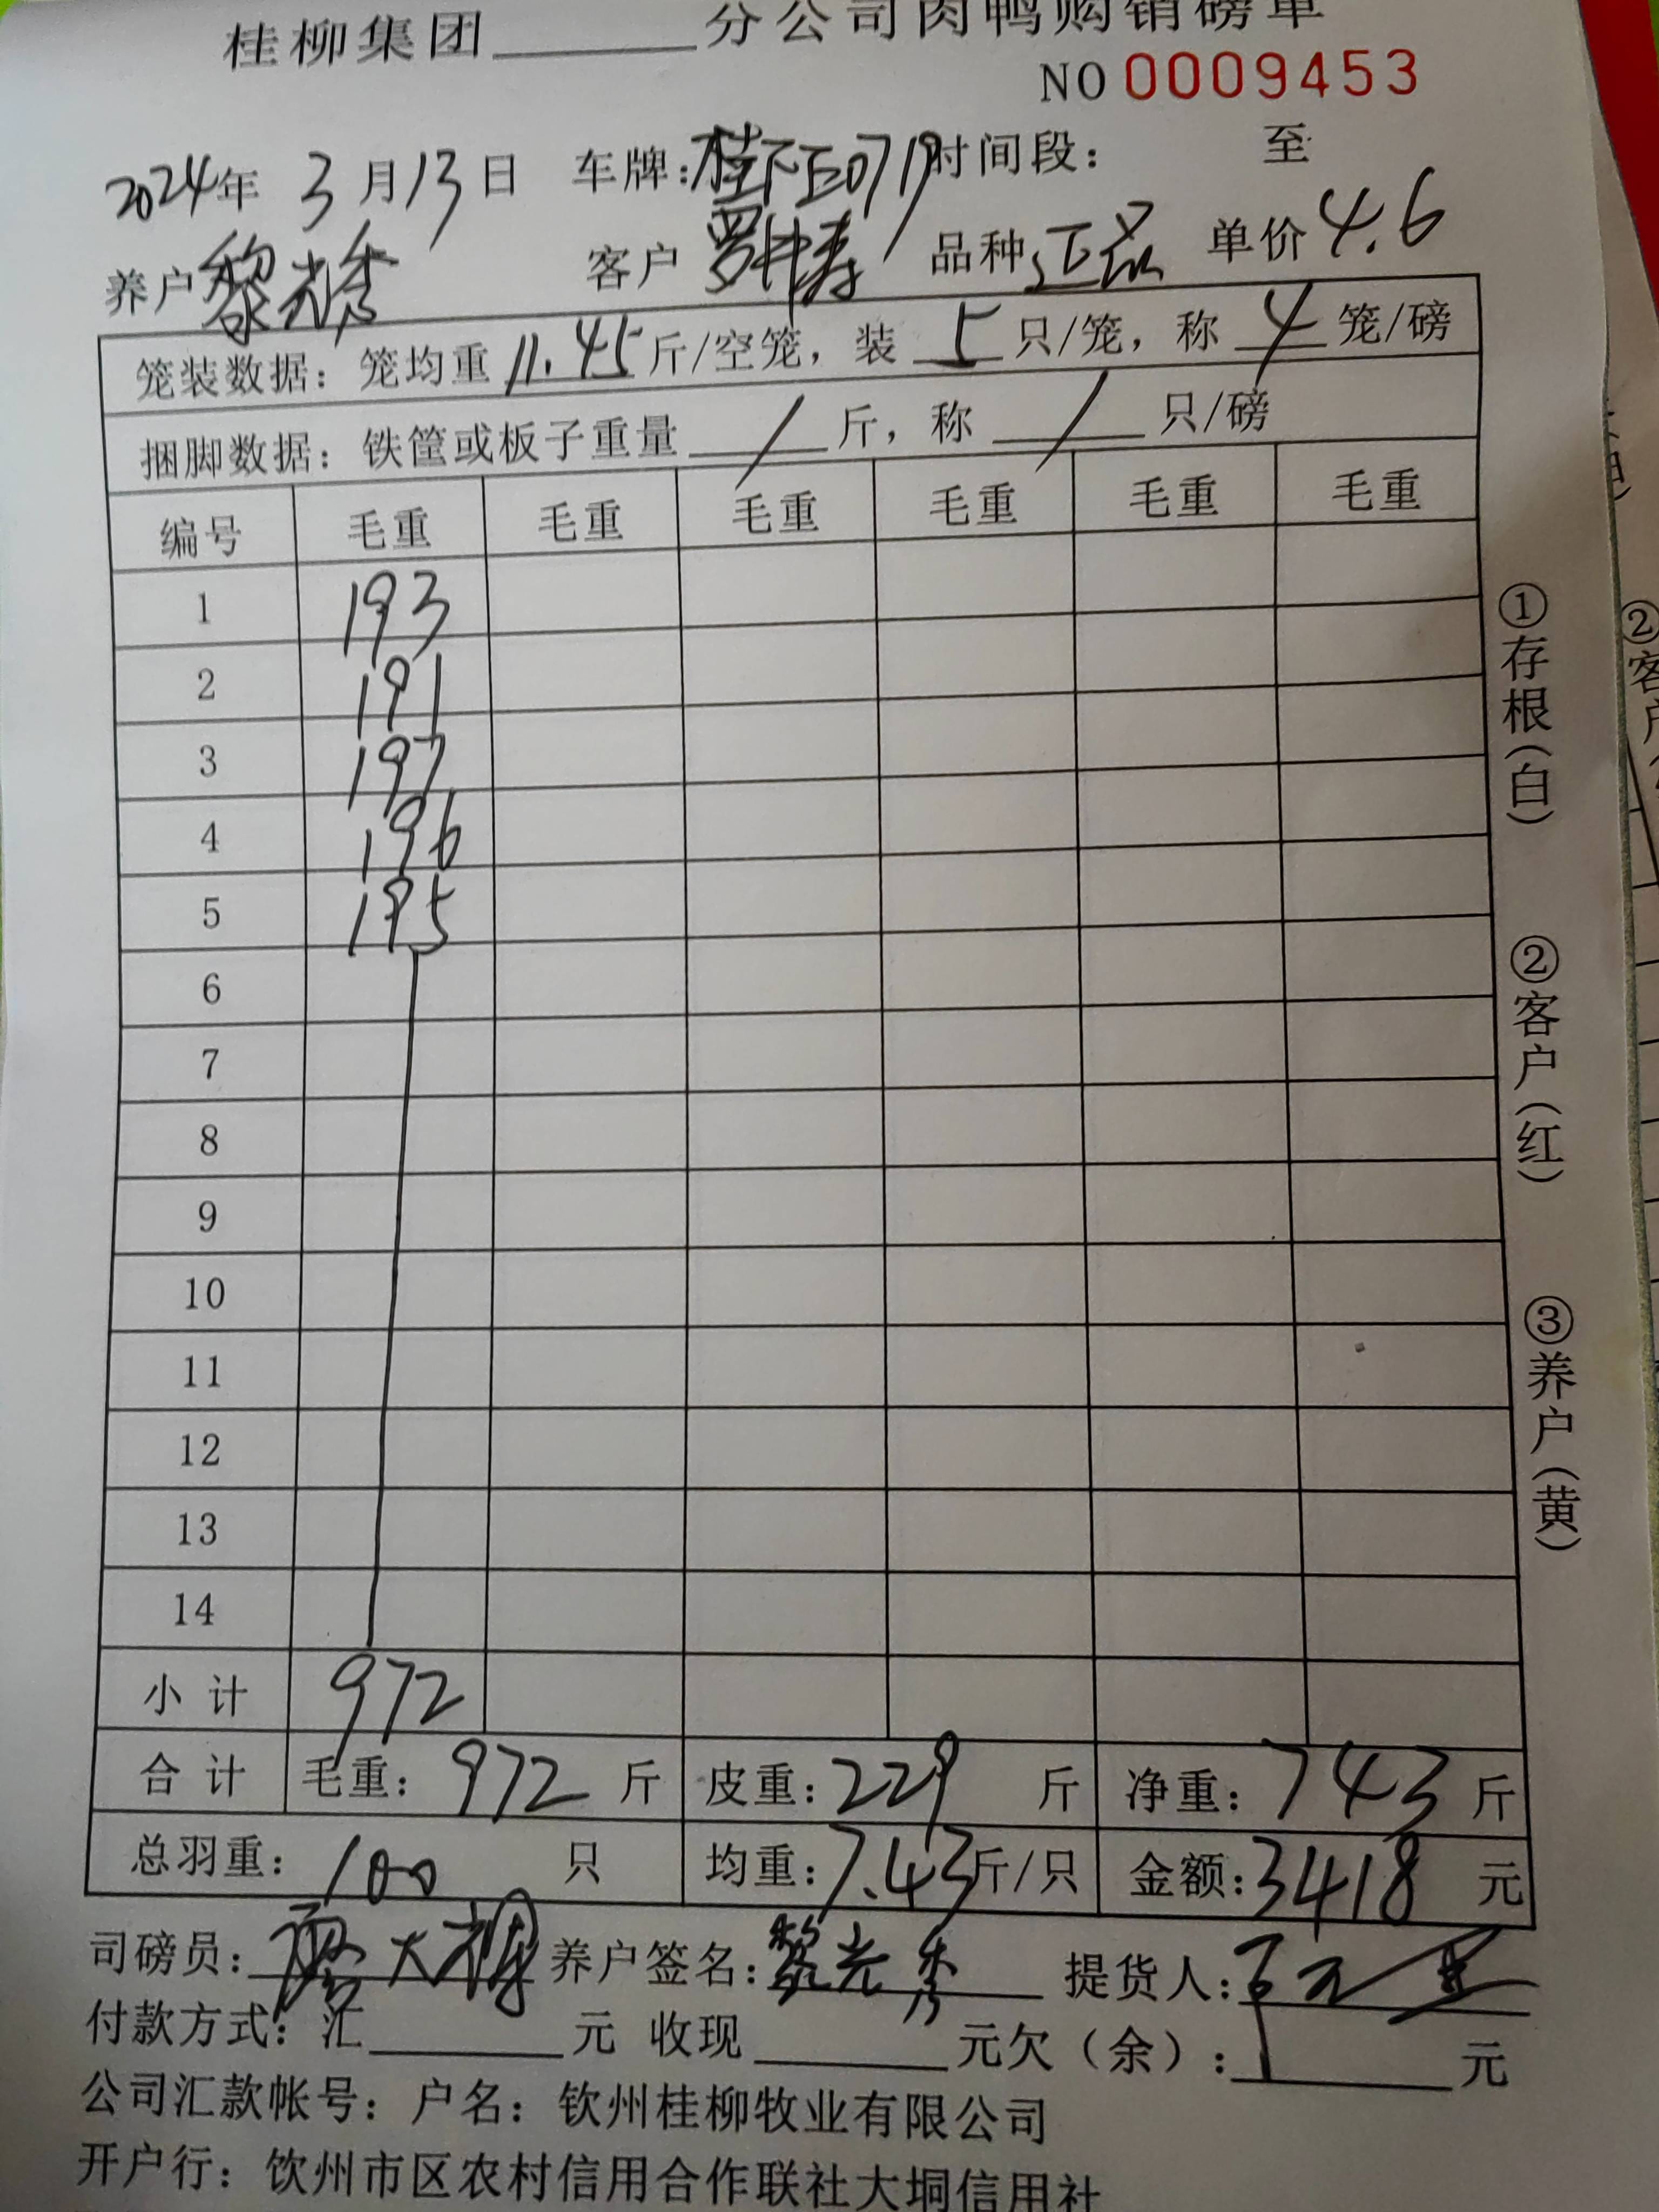 桂柳集团______分公司肉鸭购销磅单
NO 0009453
2024年 3月13日 车牌:桂 0719 时间段: 至
养户 黎光秀 客户 罗 寿 品种 正品 单价 4.6
笼装数据: 笼均重 11.45 斤/空笼, 装 5 只/笼, 称 4 笼/磅
捆脚数据: 铁筐或板子重量 / 斤, 称 / 只/磅
编号 毛重 毛重 毛重 毛重 毛重 毛重
1 193
2 191
3 197
4 196
5 195
6
7
8
9
10
11
12
13
14
小计 972
合计 毛重: 972 斤 皮重: 229 斤 净重: 743 斤
总羽重: 100 只 均重: 7.43 斤/只 金额: 3418 元
司磅员: 大 养户签名: 黎光秀 提货人:
付款方式: 汇______元 收现______元欠(余):______元
公司汇款帐号: 户名: 钦州桂柳牧业有限公司
开户行: 饮州市区农村信用合作联社大垌信用社
①存根(白)
②客户(红)
③养户(黄)
②客户